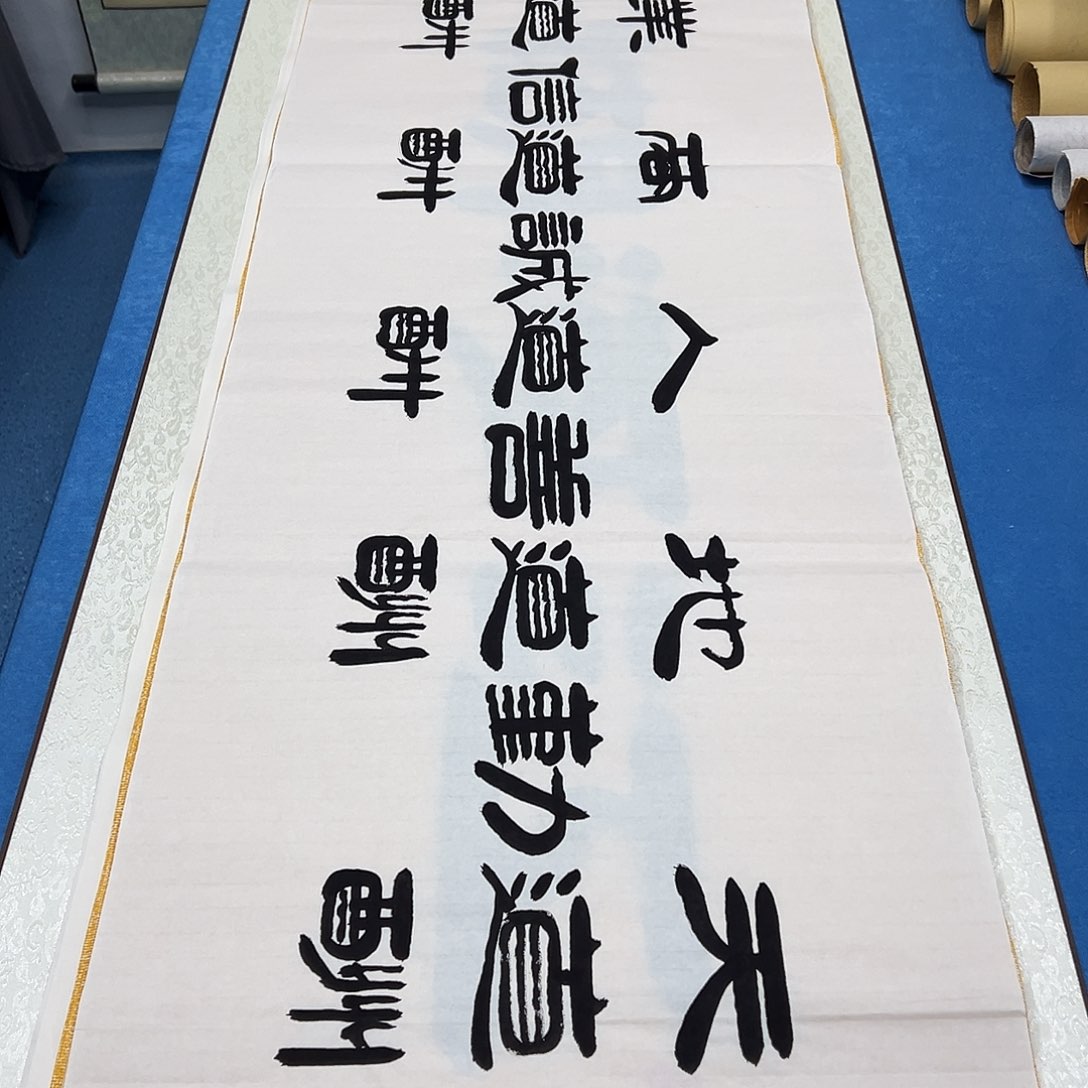 天道酬勤
地道酬善
人道酬誠
商道酬信
業道酬